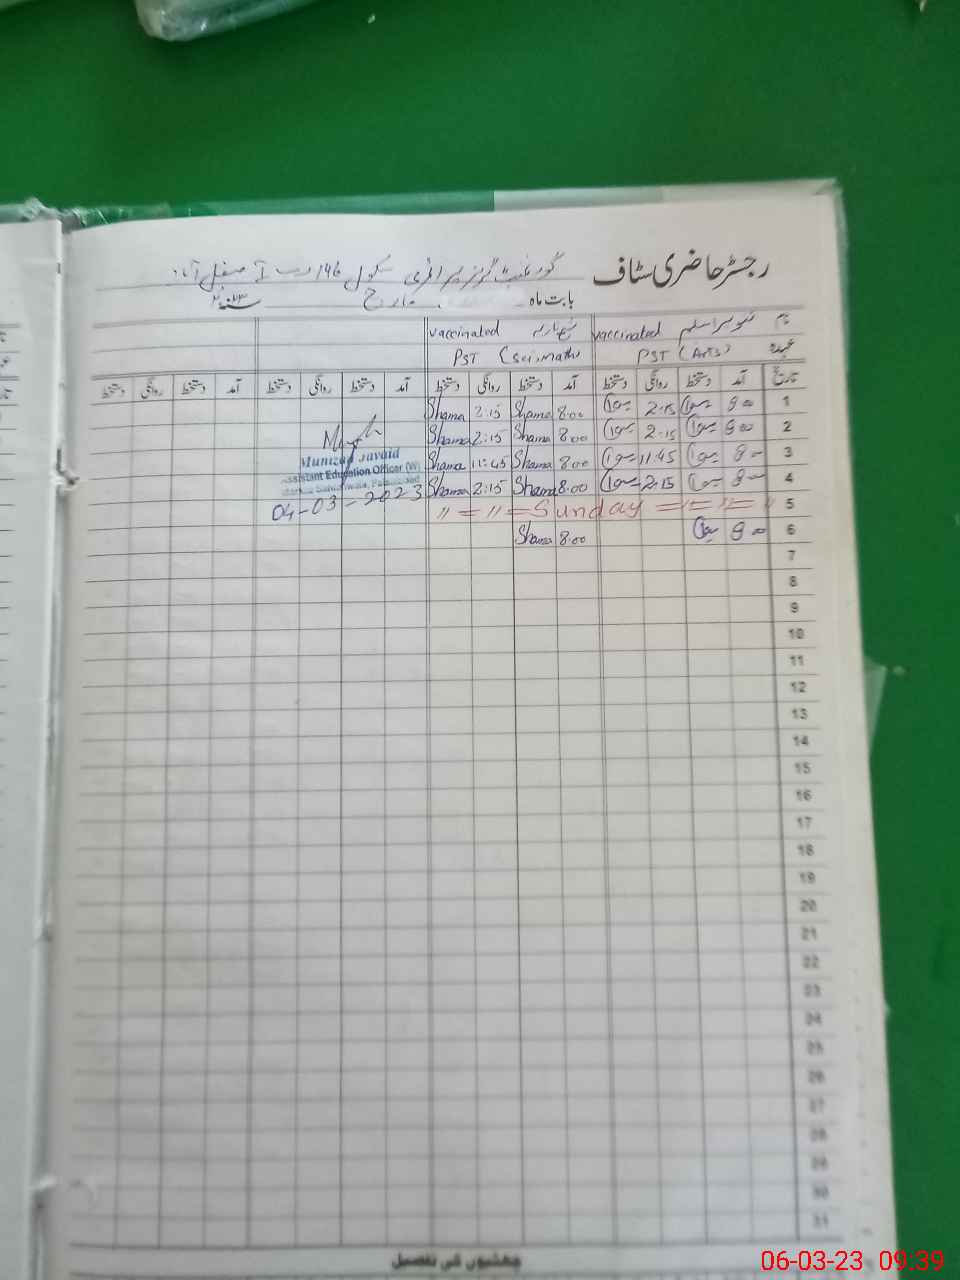 رجسٹر حاضری سٹاف گورنمنٹ گرلز پرائمری سکول 146 ر ب
بابت ماہ مارچ
نام vaccinated vaccinated
عہدہ PST (Arts) PST (Sci,math)
تاریخ آمد دستخط روانگی دستخط آمد دستخط روانگی دستخط آمد دستخط روانگی دستخط آمد دستخط روانگی دستخط
1 8:00 2:15 8:00 Shama 2:15 Shama
2 8:00 2:15 8:00 Shama 2:15 Shama
3 8:00 11:45 8:00 Shama 11:45 Shama
4 8:00 2:15 8:00 Shama 2:15 Shama
Munizap Javaid
Assistant Education Officer (W)
04-03-2023
5 " = " = Sunday = " = " = "
6 8:00 8:00 Shama
7
8
9
10
11
12
13
14
15
16
17
18
19
20
21
22
23
24
25
26
27
28
29
30
31
چھٹیوں کی تفصیل
06-03-23 09:39